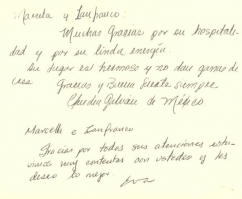 Marcela y Lanfranco:
Muchas Gracias por su hospitali-
dad y por su linda energía.
Su lugar es hermoso y no dan ganas de
irse Gracias y Buena Suerte siempre
de México
Marcella e Lanfranco
Gracias por todas sus atenciones estu-
vimos muy contentas con ustedes y les
deseo lo mejor.
Eva